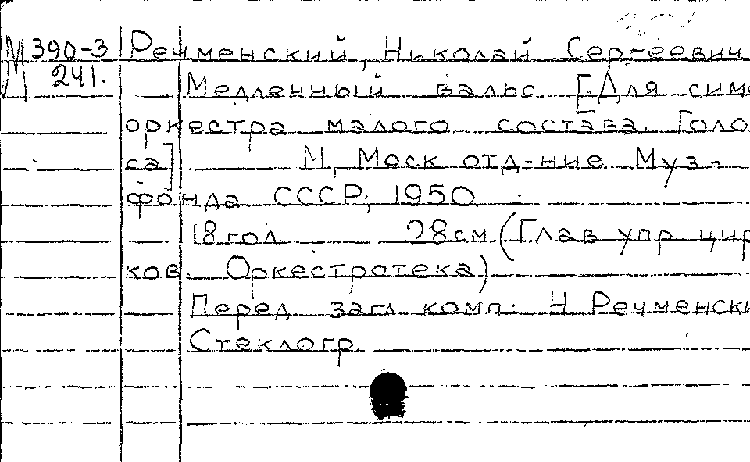 М 390-3 Речменский, Николай Сергеевич
241. Медленный вальс [Для симф
оркестра малого состава. Голо
са] М, Моск отд-ние Муз-
фонда СССР, 1950
18 гол 28 см (Глав упр цир
ков. Оркестротека)
Перед загл комп: Н Речменски
Стеклогр